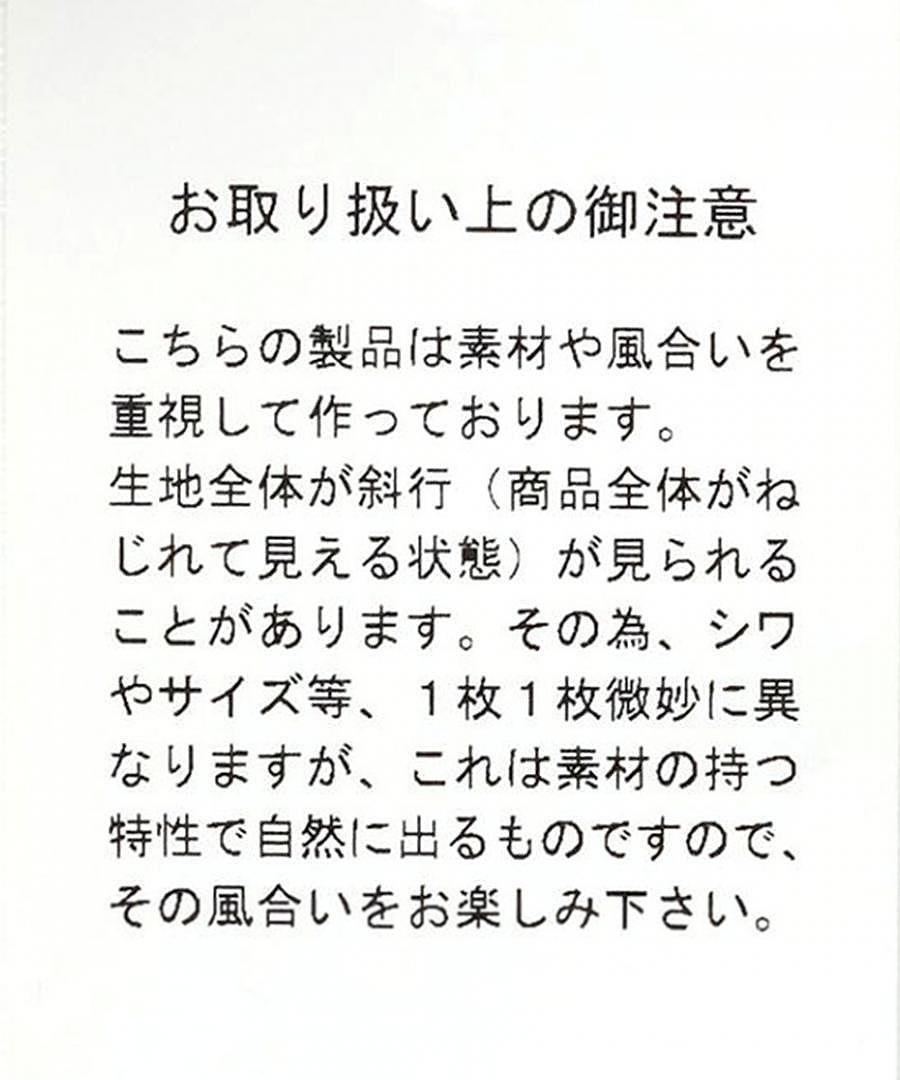 お取り扱い上の御注意
こちらの製品は素材や風合いを
重視して作っております。
生地全体が斜行（商品全体がね
じれて見える状態）が見られる
ことがあります。その為、シワ
やサイズ等、１枚１枚微妙に異
なりますが、これは素材の持つ
特性で自然に出るものですので、
その風合いをお楽しみ下さい。